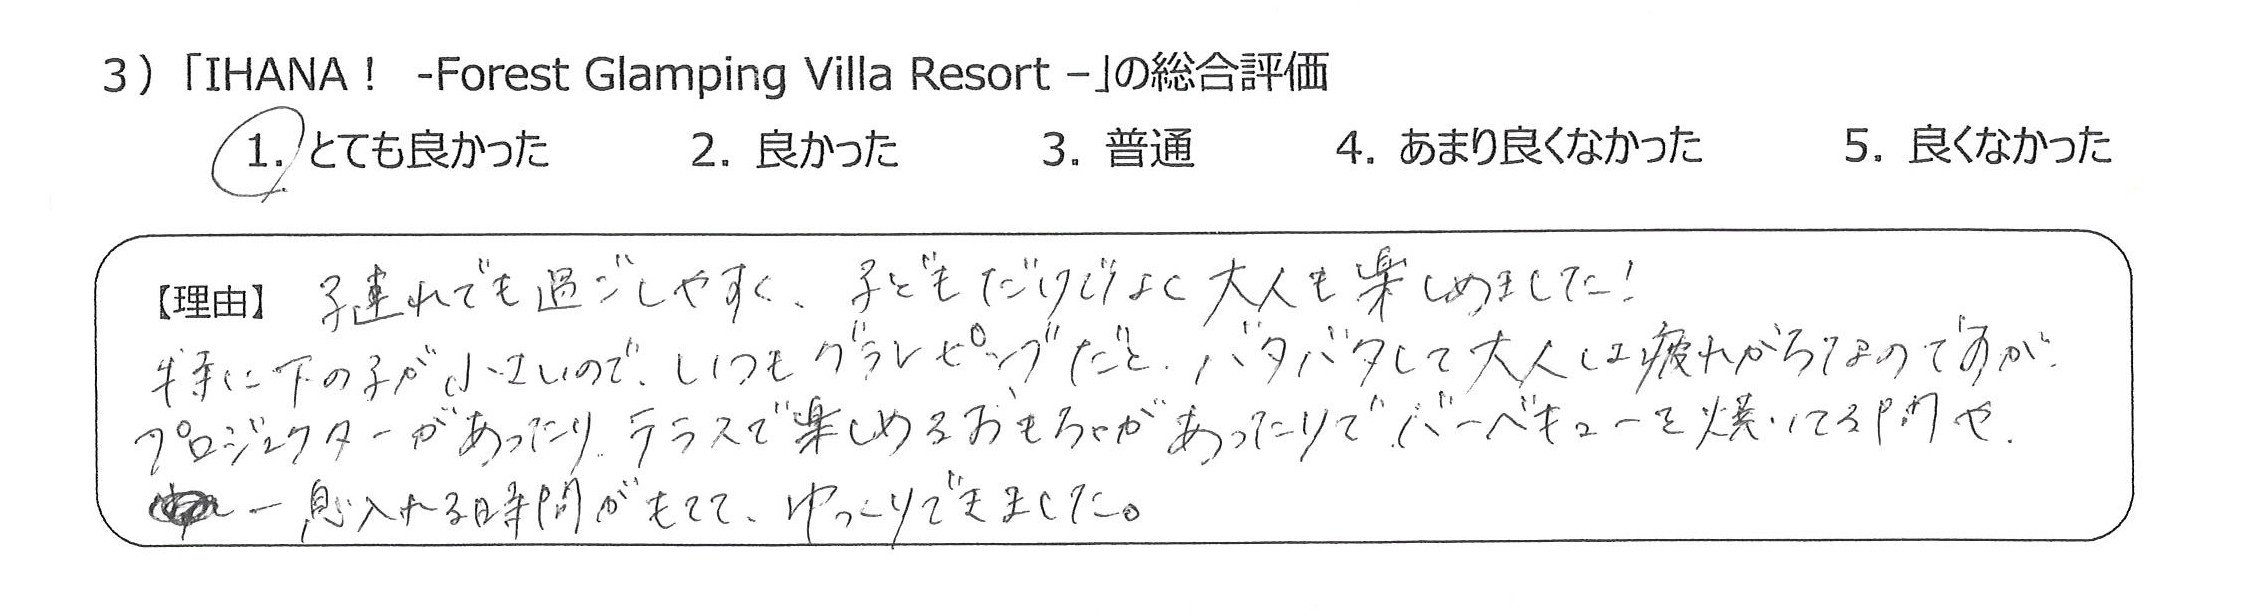 3）「IHANA！ -Forest Glamping Villa Resort –」の総合評価
1. とても良かった 2. 良かった 3. 普通 4. あまり良くなかった 5. 良くなかった
【理由】 子連れでも過ごしやすく、子どもだけでなく大人も楽しめました!
特に下の子が小さいので、いつもグランピングだと、バタバタして大人は疲れがちなのですが、
プロジェクターがあったり、テラスで楽しめるおもちゃがあったりで、バーベキューを焼いてる間や、
一息入れる時間がもてて、ゆっくりできました。